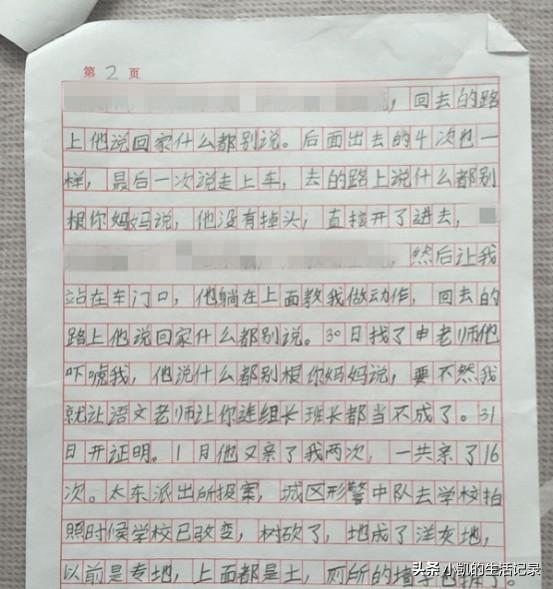 第2页
，回去的路
上他说回家什么都别说。后面出去的4次也一
样，最后一次说走上车，去的路上说什么都别
根你妈妈说，他没有掉头，直接开了进去，
，然后让我
站在车门口，他躺在上面教我做动作，回去的
路上他说回家什么都别说。30日找了申老师他
吓唬我，他说什么都别根你妈妈说，要不然我
就让语文老师让你连组长班长都当不成了。31
日开证明。1月他又亲了我两次，一共亲了16
次。太东派出所报案，城区形警中队去学校拍
照时候学校已改变，树砍了，地成了洋灰地，
以前是专地，上面都是土，厕所的墙字也拆了。
头条 小凯的生活记录